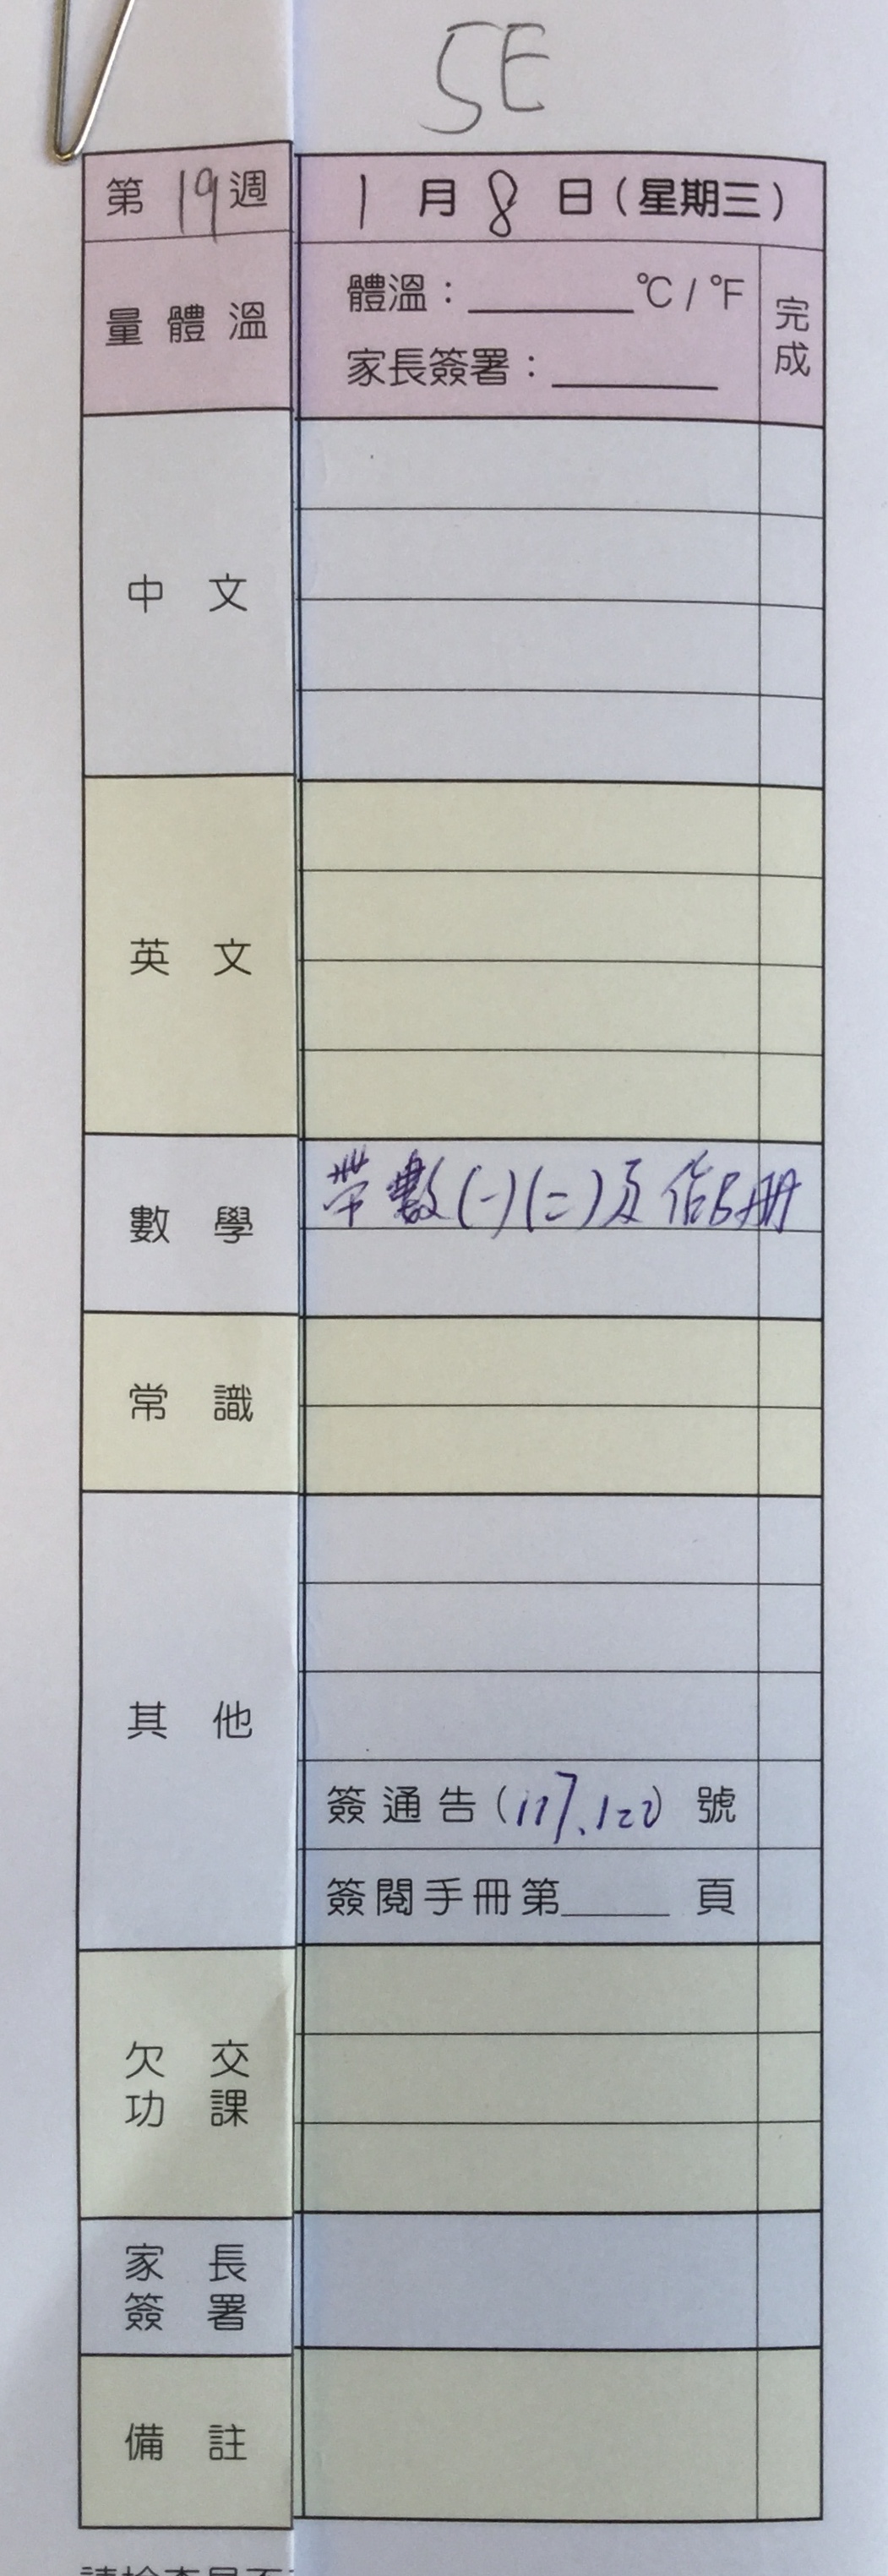 5E
第19週
1月8日(星期三)
量體溫
體溫：______℃/℉
家長簽署：______
完成
中文
英文
數學
帶數(一)(二)及作5册
常識
其他
簽通告(117、120)號
簽閱手冊第____頁
欠交功課
家長簽署
備註